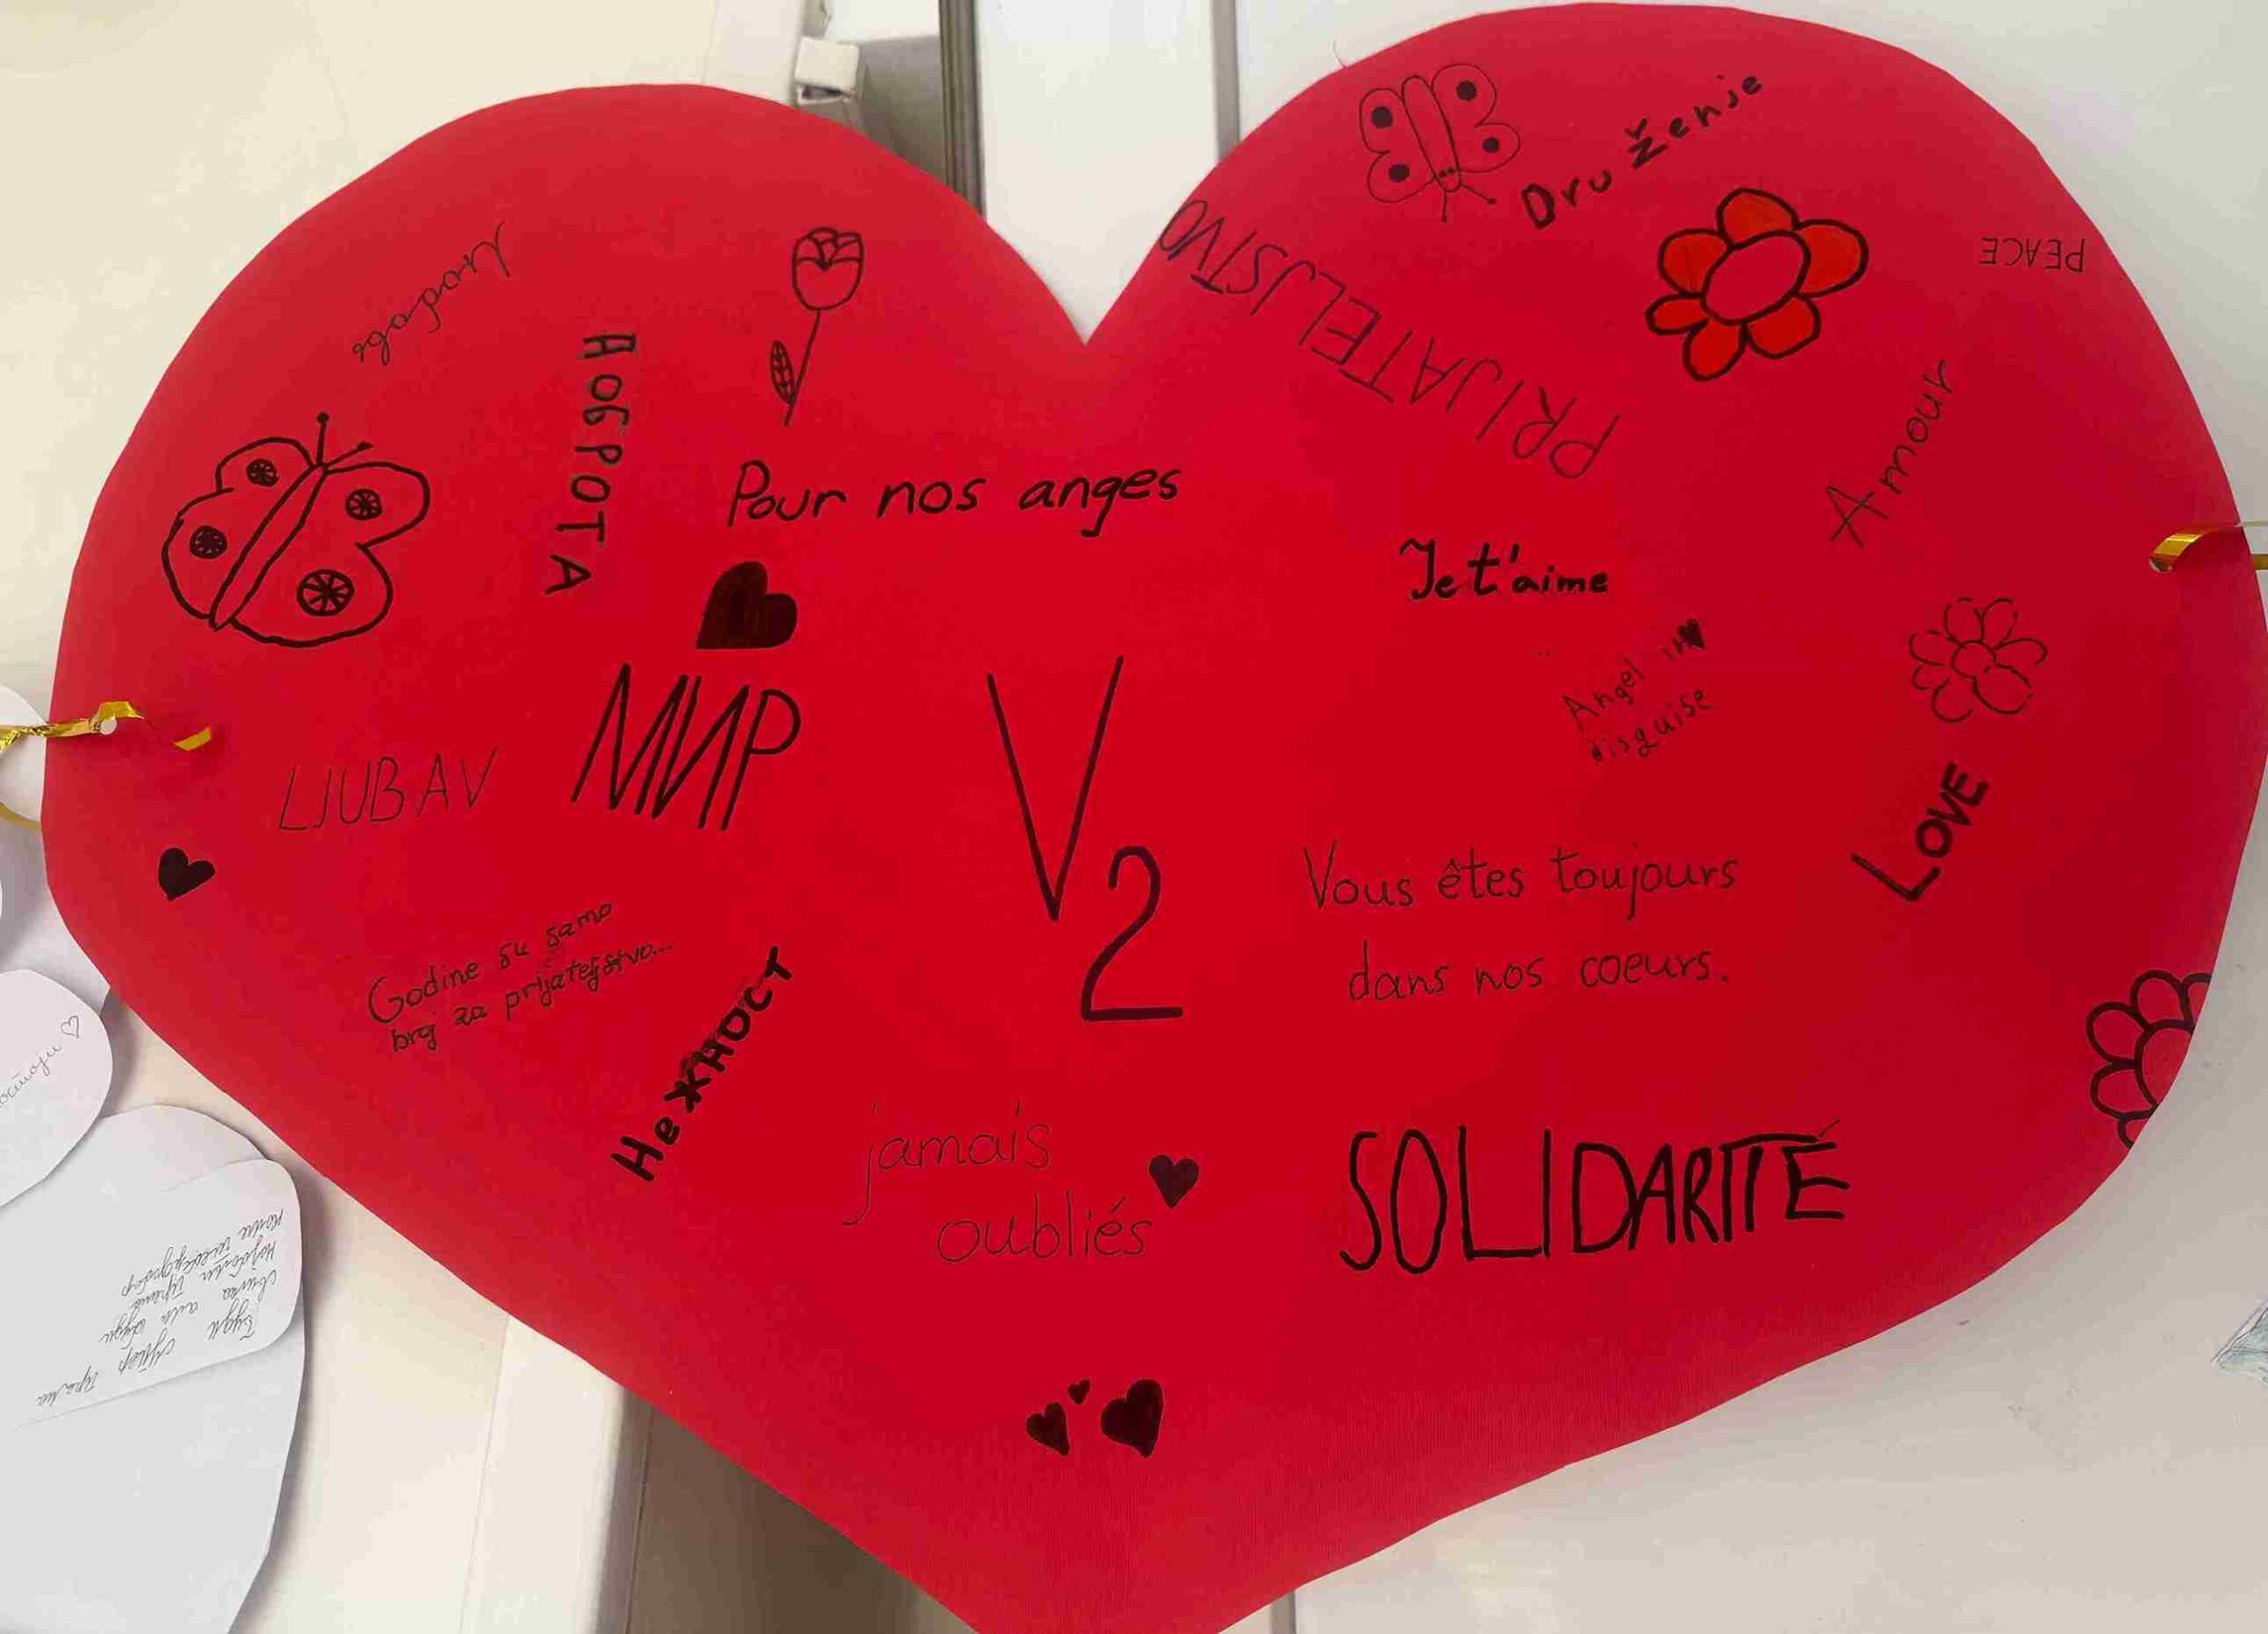 Druženje
PEACE
PRIJATELJSTVO
Љубав
Доброта
Amour
Pour nos anges
Je t'aime
Angel in
disguise
МИР
LJUBAV
V2
LOVE
Vous êtes toujours
dans nos coeurs.
Godine su samo
broj za prijateljstvo...
Нежност
jamais
oubliés
SOLIDARITÉ